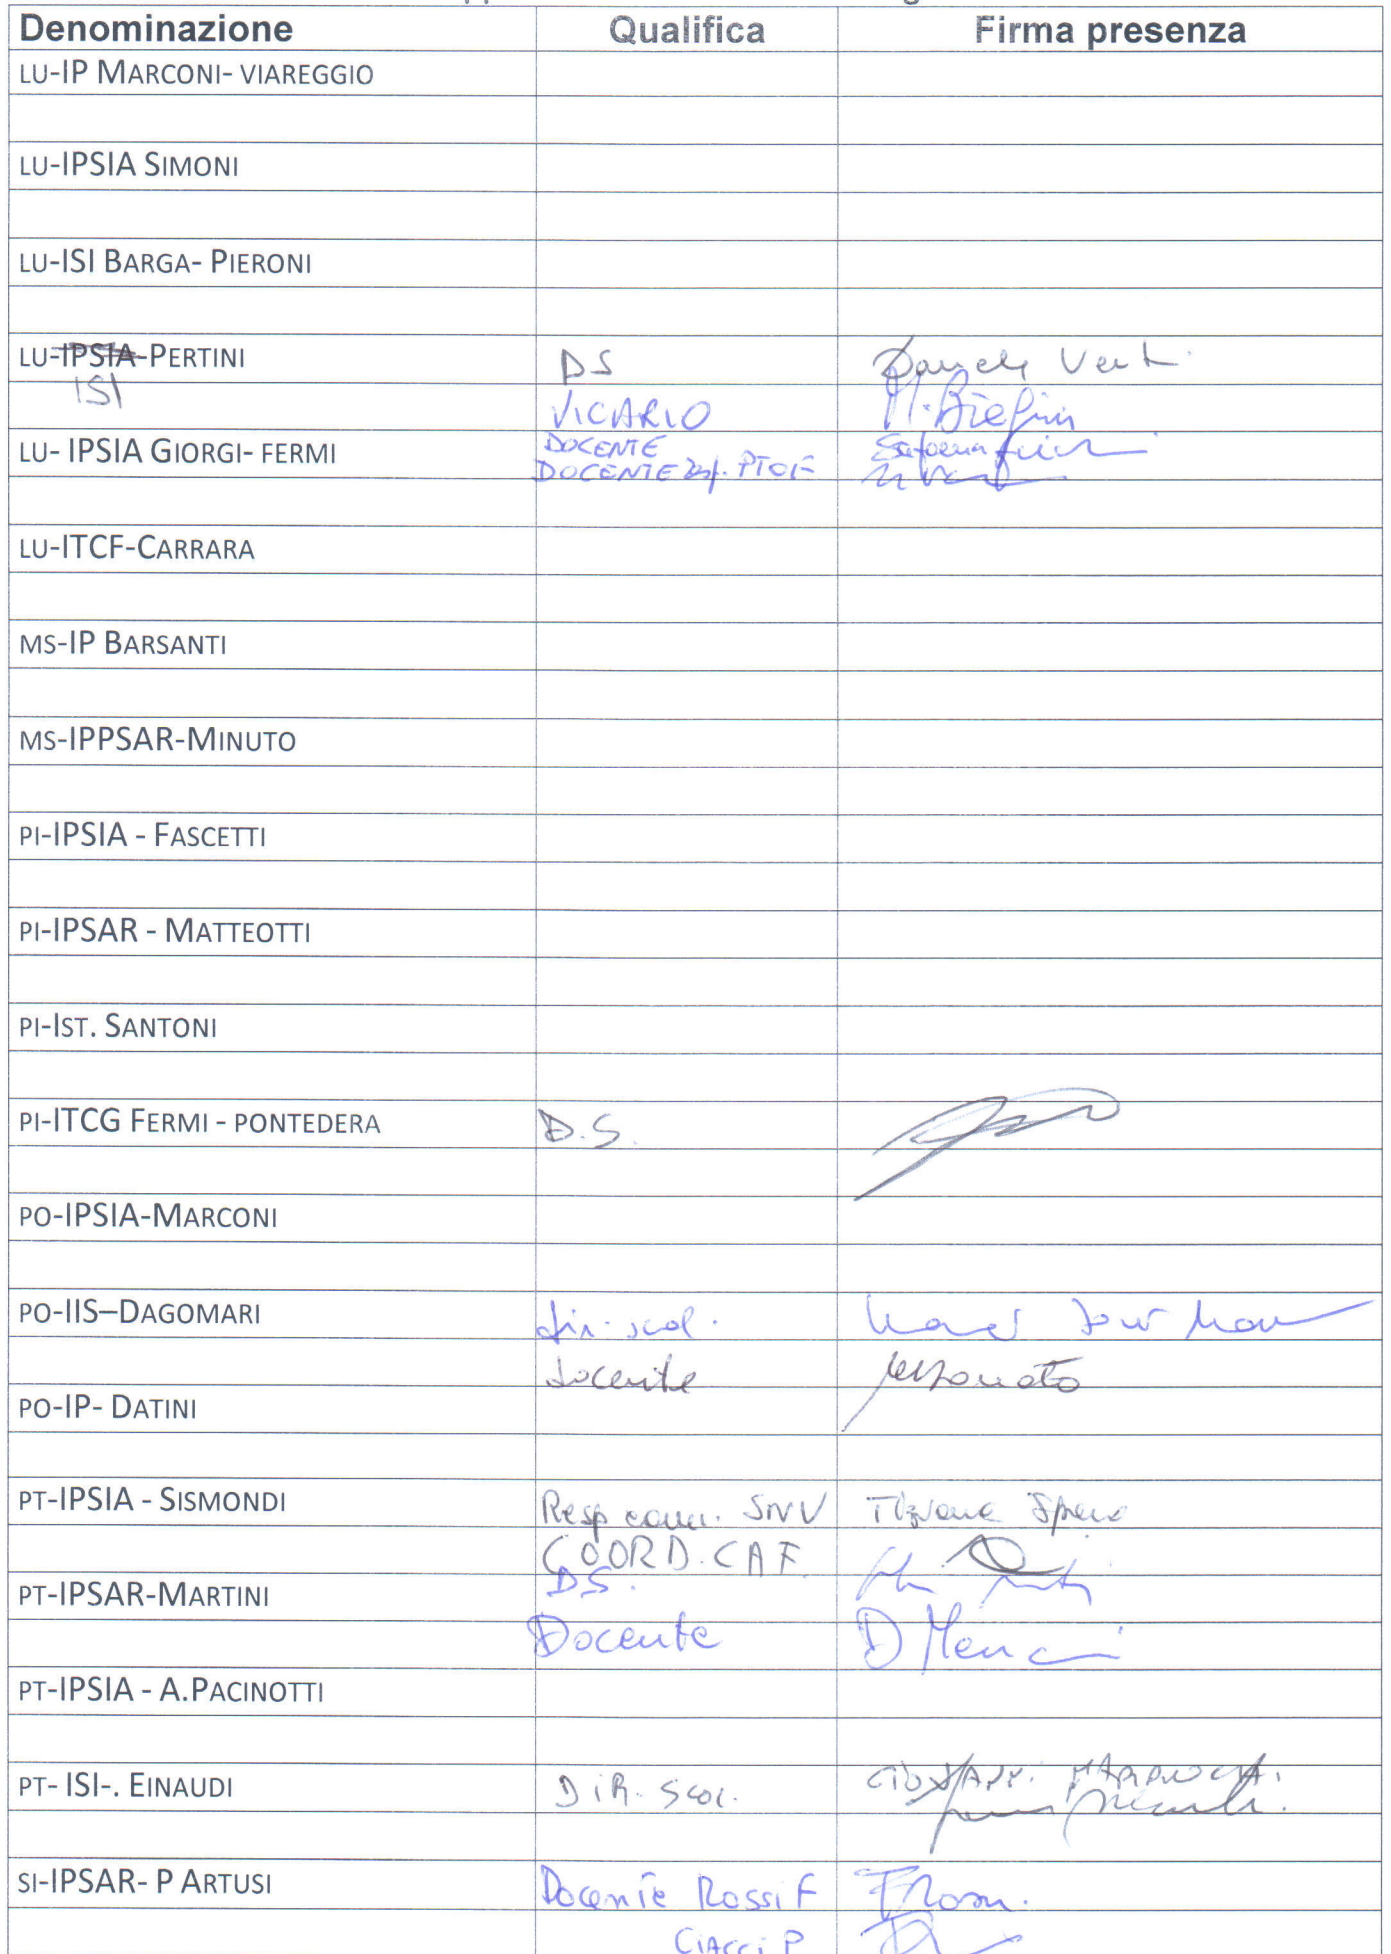 Denominazione Qualifica Firma presenza
LU-IP MARCONI- VIAREGGIO
LU-IPSIA SIMONI
LU-ISI BARGA- PIERONI
LU-IPSIA-PERTINI DS
ISI VICARIO
LU- IPSIA GIORGI- FERMI DOCENTE
DOCENTE PTOF
LU-ITCF-CARRARA
MS-IP BARSANTI
MS-IPPSAR-MINUTO
PI-IPSIA - FASCETTI
PI-IPSAR - MATTEOTTI
PI-IST. SANTONI
PI-ITCG FERMI - PONTEDERA D.S.
PO-IPSIA-MARCONI
PO-IIS–DAGOMARI dir. scol.
docente
PO-IP- DATINI
PT-IPSIA - SISMONDI Resp comm. SNV Tiziana
COORD. CAF
PT-IPSAR-MARTINI DS.
Docente D
PT-IPSIA - A.PACINOTTI
PT- ISI-. EINAUDI DIR. Scol.
SI-IPSAR- P ARTUSI Docente Rossi F F Rossi.
CIACCI P